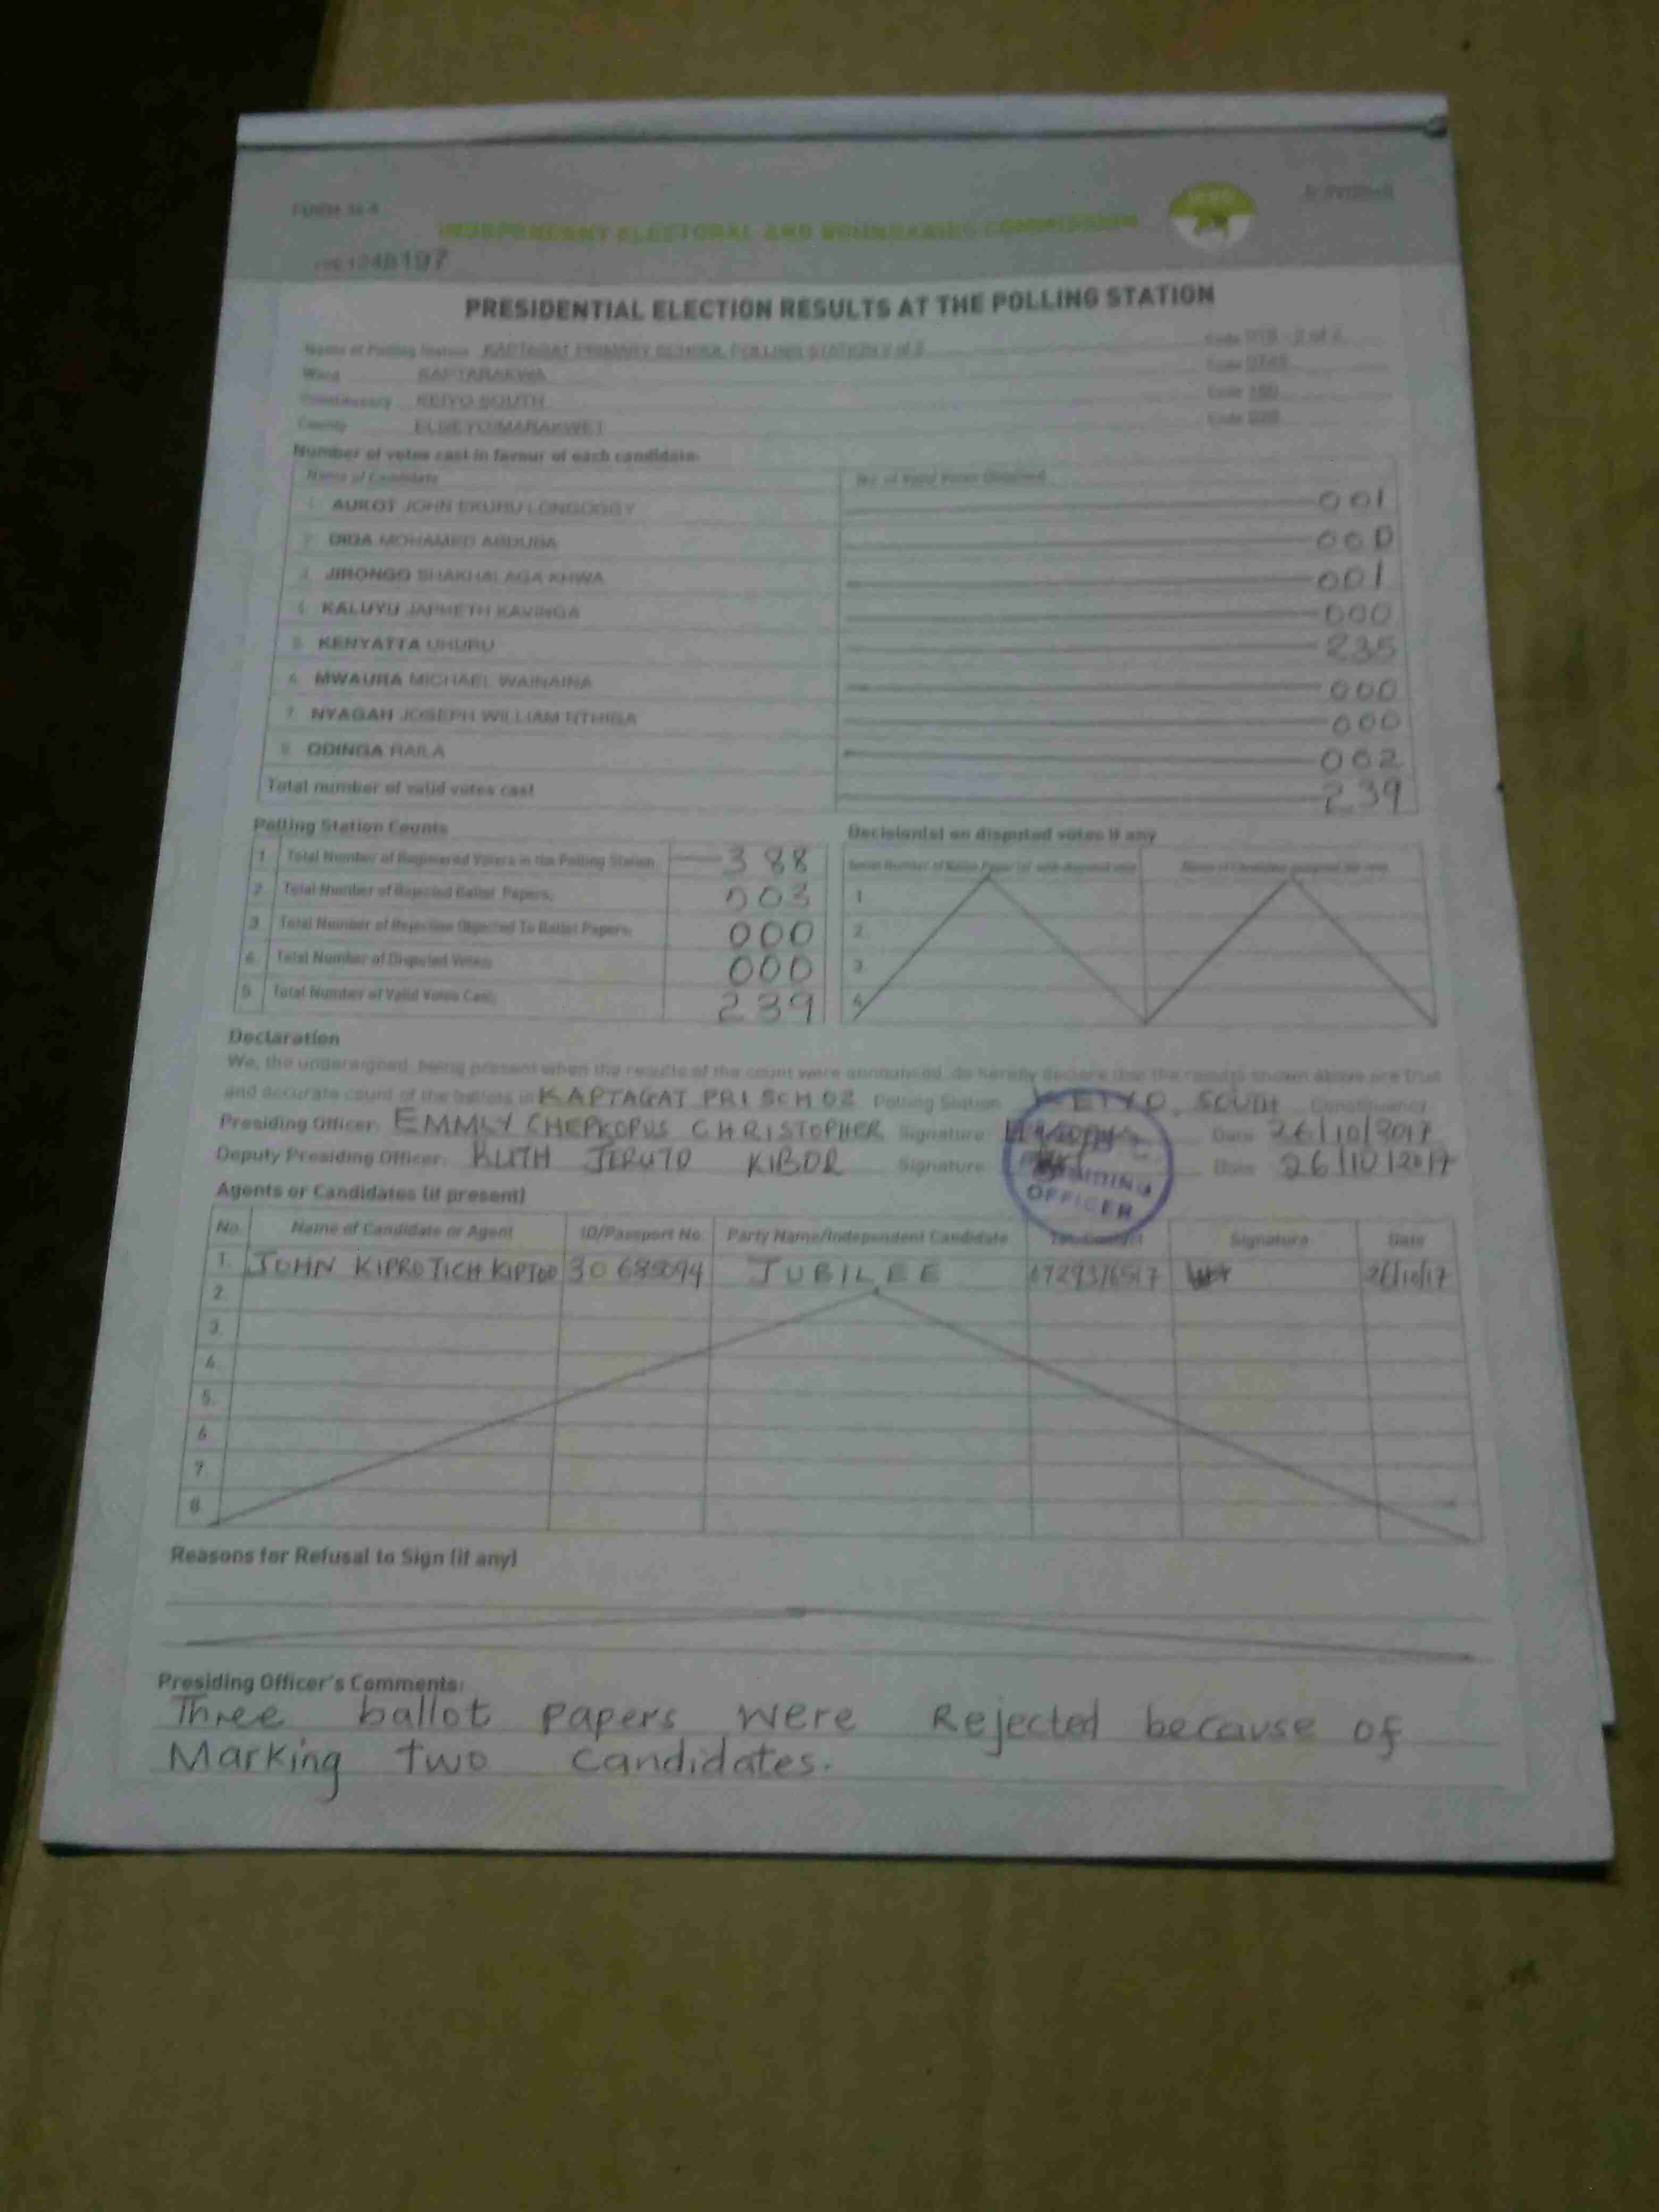 FORM 34 A
INDEPENDENT ELECTORAL AND BOUNDARIES COMMISSION
PRESIDENTIAL ELECTION RESULTS AT THE POLLING STATION
Name of Polling Station KAPTAGAT PRIMARY SCHOOL POLLING STATION 2 of 2
Ward KAPTARAKWA
Constituency KEIYO SOUTH
County ELGEYO/MARAKWET
Number of votes cast in favour of each candidate:
Name of Candidate No. of Valid Votes Obtained
1. AUKOT JOHN EKURU LONGOGGY 001
2. DIDA MOHAMED ABDUBA 000
3. JIRONGO SHAKHALAGA KHWA 001
4. KALUYU JAPHETH KAVINGA 000
5. KENYATTA UHURU 235
6. MWAURA MICHAEL WAINAINA 000
7. NYAGAH JOSEPH WILLIAM NTHIGA 000
8. ODINGA RAILA 002
Total number of valid votes cast 239
Polling Station Counts
1. Total Number of Registered Voters in the Polling Station 388
2. Total Number of Rejected Ballot Papers. 003
3. Total Number of Rejection Objected To Ballot Papers. 000
4. Total Number of Disputed Votes 000
5. Total Number of Valid Votes Cast 239
Decision(s) on disputed votes if any
1.
2.
3.
4.
Declaration
We, the undersigned, being present when the results of the count were announced, do hereby declare that the results shown above are true
and accurate count of the ballots in KAPTAGAT PRI SCH 02 Polling Station KEIYO SOUTH Constituency
Presiding Officer: EMMLY CHEPKOPUS CHRISTOPHER Signature Date 26/10/2017
Deputy Presiding Officer: RUTH JERUTO KIBOR Signature Date 26/10/2017
PRESIDING
OFFICER
Agents or Candidates (if present)
No. Name of Candidate or Agent ID/Passport No. Party Name/Independent Candidate Tel. Contact Signature Date
1. JOHN KIPROTICH KIPTOO JUBILEE 26/10/17
2.
3.
4.
5.
6.
7.
8.
Reasons for Refusal to Sign (if any)
Presiding Officer's Comments:
Three ballot papers were Rejected because of
Marking two candidates.